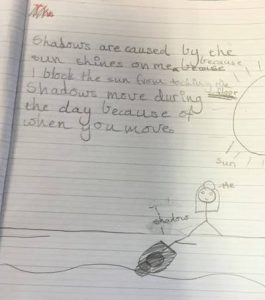 The
Shadows are caused by the
sun shines on me because
I block the sun from toching the
floor
Shadows move during
the day because of
when you move.
sun
me
shadow